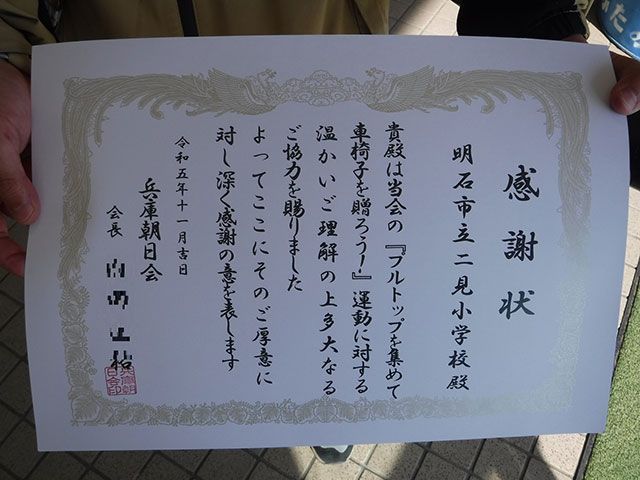 感謝状
明石市立二見小学校殿
貴殿は当会の『プルトップを集めて
車椅子を贈ろう！』運動に対する
温かいご理解の上多大なる
ご協力を賜りました
よってここにそのご厚意に
対し深く感謝の意を表します
令和五年十一月吉日
兵庫朝日会
会長